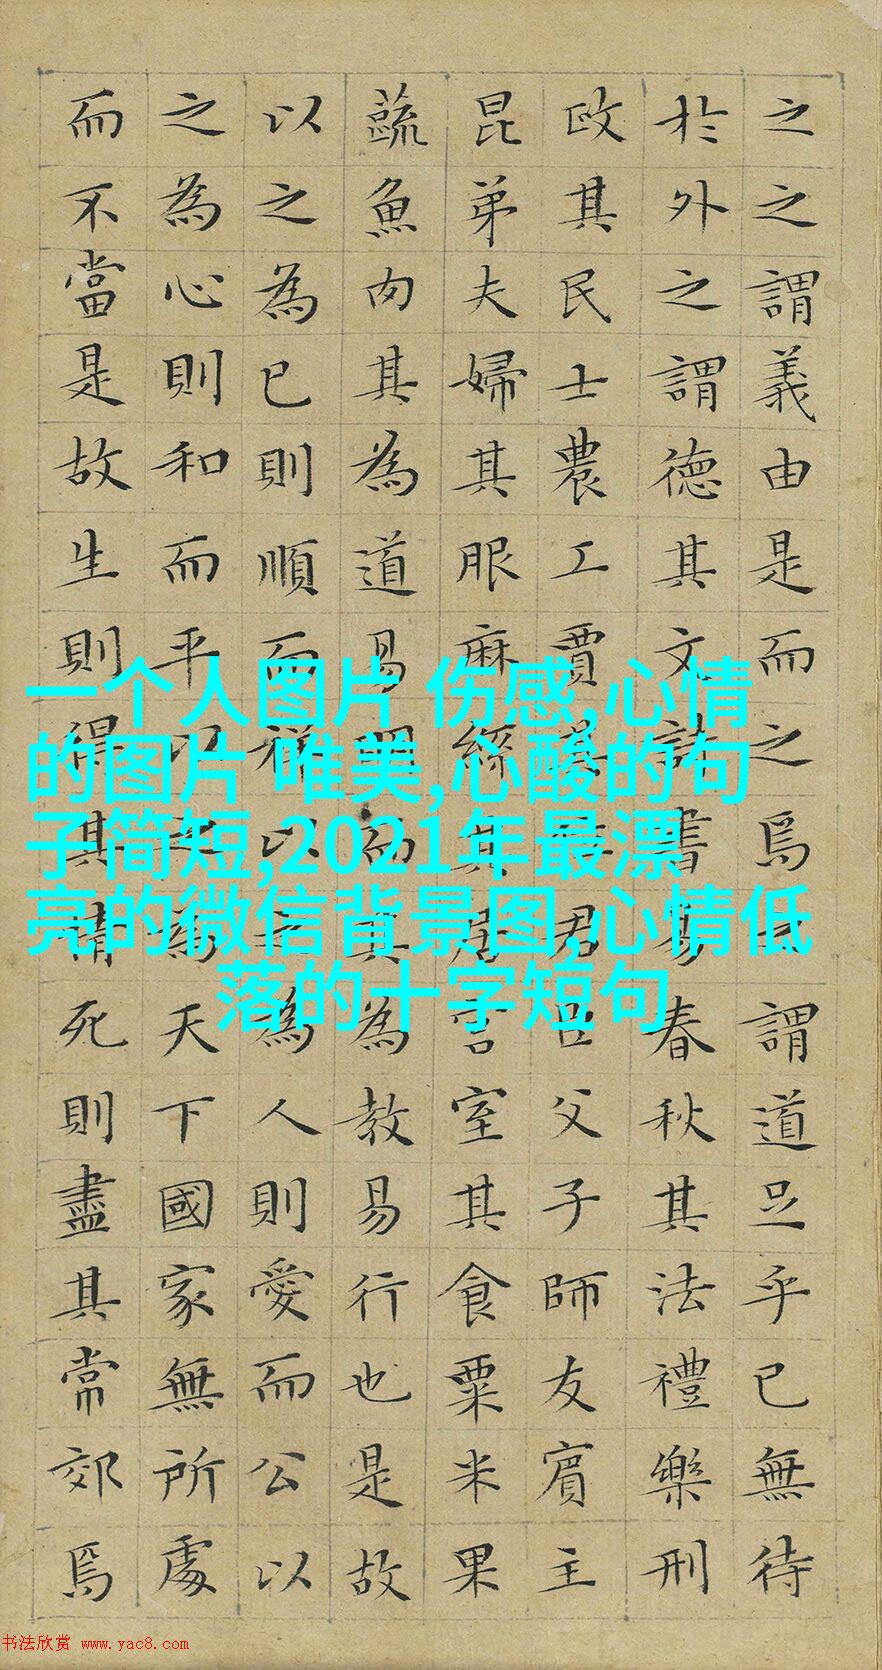 之之謂義由是而之焉之謂道足乎已無待
於外之謂德其文詩書易春秋其法禮樂刑
政其民士農工賈其君臣父子師友賓主
昆弟夫婦其服麻絲其居宮室其食粟米果
蔬魚肉其為道易明而其為教易行也是故
以之為已則順而祥以之為人則愛而公以
之為心則和而平以之為天下國家無所處
而不當是故生則得其情死則盡其常郊焉
一个人图片 伤感,心情
的图片 唯美,心酸的句
子简短,2021年最漂
亮的微信背景图,心情低
落的十字短句
书法欣赏 www.yac8.com